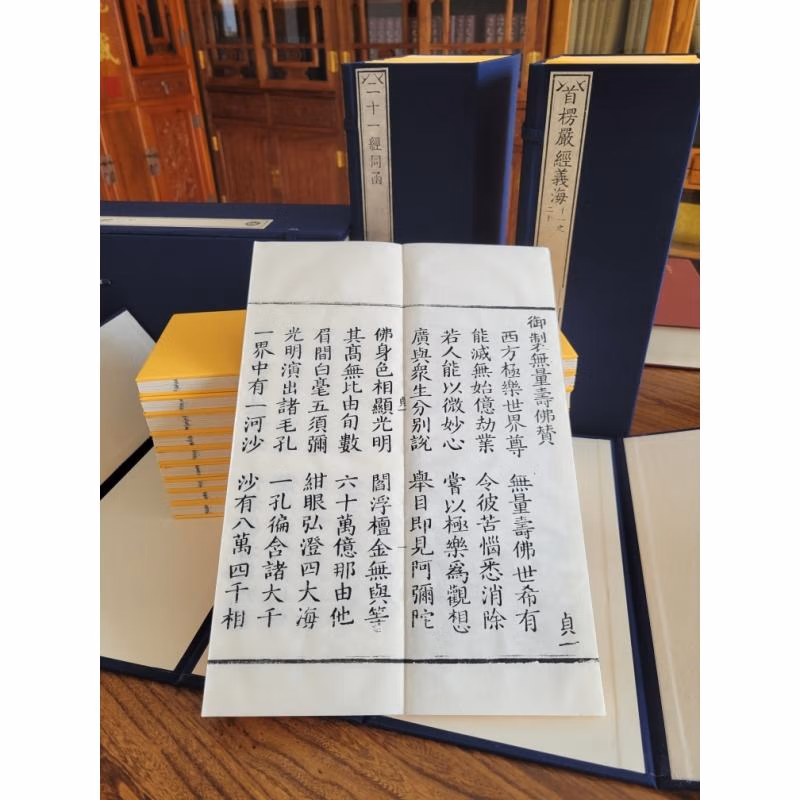 二十一經同函
首楞嚴經義海
十一之
二十
御製無量壽佛贊
西方極樂世界尊 無量壽佛世希有
能滅無始億劫業 令彼苦惱悉消除
若人能以微妙心 嘗以極樂爲觀想
廣與衆生分別說 舉目即見阿彌陀
佛身色相顯光明 閻浮檀金無與等
其髙無比由旬數 六十萬億那由他
眉間白毫五須彌 紺眼弘澄四大海
光明演出諸毛孔 一孔徧含諸大千
一界中有一河沙 沙有八萬四千相
貞一
貞一
藏